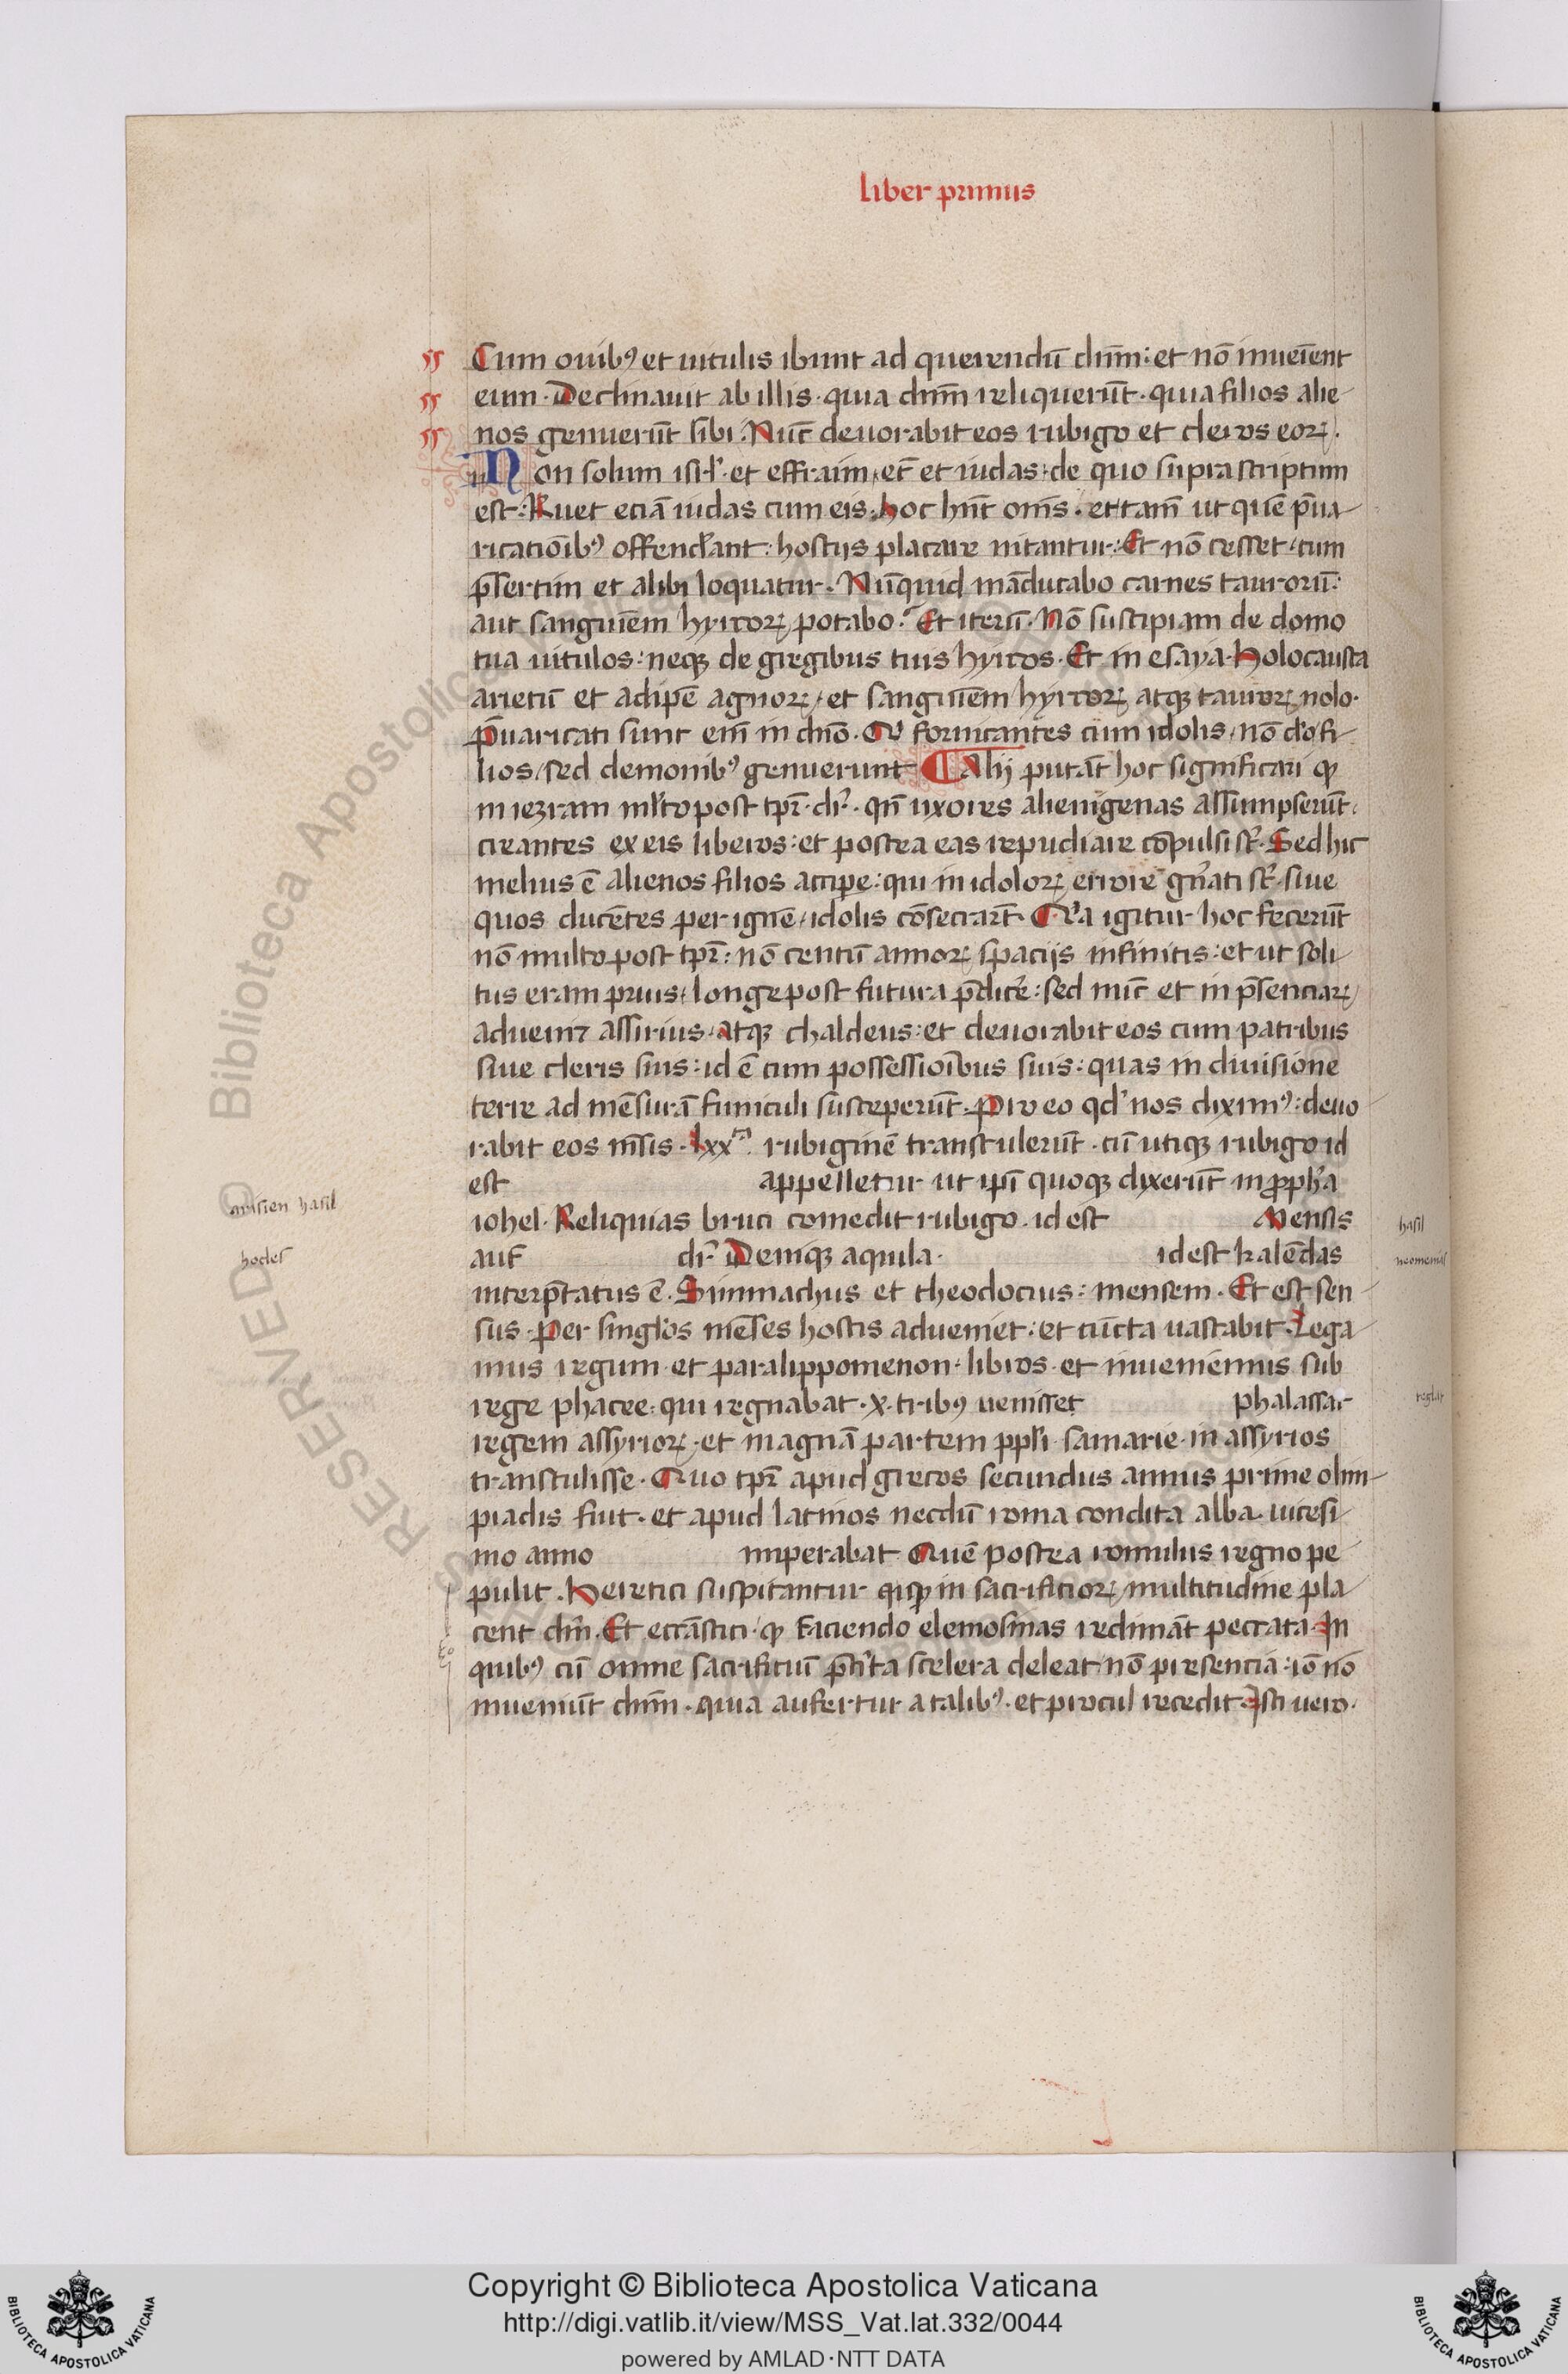 liber primus
Cum ouibꝰ et uitulis ibunt ad querendū dn̄m: et nō inueīent
eum. Declinauit ab illis. quia dn̄m reliquerūt. quia filios alie
nos genuerūt sibi. Nūc deuorabit eos rubigo et cleros eoꝝ.
Non solum isr̄l. et effraim, et̄ et iudas: de quo supra scriptum
est: Ruet eciā iudas cum eis. hoc hn̄t om̄s. et tam̄ ut quē p̄ua
ricatiōibꝰ offenderant: hostijs placare nitantur: Et nō cesset: cum
p̄sertim et alibi loquatur. Nūquid māducabo carnes taurorū:
aut sanguīem hyrcoꝝ potabo. Et iterū. Nō suscipiam de domo
tua uitulos: neqꝫ de gregibus tuis hyrcos. Et in esaya. Holocausta
arietū et adipē agnoꝝ, et sanguīem hyrcoꝝ atqꝫ tauroꝝ nolo.
p̄uaricati sunt em̄ in dn̄o. Et fornicantes cum idolis, nō d̄o fi
lios, sed demonibꝰ genuerunt Alij putāt hoc significari ꝙ
in iezram ml̄to post tpr̄. dr̄. qn̄ uxores alienigenas assumpserūt.
creantes ex eis liberos: et postea eas repudiare cōpulsi st̄. Sed hic
melius ē alienos filios accipe: qui in idoloꝝ errore gn̄ati st̄. siue
quos ducētes per ignē, idolis cōsecrarūt. Qr̄a igitur hoc fecerūt
nō multo post tpr̄: nō centū annoꝝ spacijs infinitis: et ut soli
tus eram prius, longe post futura p̄dicē: sed nūc et in p̄senciaꝝ
aduenit assirius. atqꝫ chaldeus: et deuorabit eos cum patribus
siue cleris suis: id ē cum possessioībus suis: quas in diuisione
terre ad mēsurā funiculi susceperūt. Pro eo qd̄ nos diximꝰ: deuo
rabit eos m̄sis. lxx rubiginē transtulerūt. cū utiqꝫ rubigo id
est appelletur ut ip̄i quoqꝫ dixerūt in ꝓph̄a
iohel. Reliquias bruci comedit rubigo. id est Mensis
aut̄ dr̄. Deniqꝫ aquila. id est kalēdas
interp̄tatus ē. Simmachus et theodocius: mensem. Et est sen
sus. Per singl̄os mēses hostis adueniet: et cūcta uastabit. Lega
mus regum et paralippomenon libros. et inueniemus sub
rege phacee: qui regnabat. x. tribꝰ uenisset phalassar
regem assyrioꝝ. et magnā partem ppl̄i samarie in assyrios
transtulisse. Quo tpr̄ apud grecos secundus annus prime olim
piadis fuit. et apud latinos necdū roma condita alba. uicesi
mo anno imperabat Quē postea romulus regno pe
pulit. Heretici suspicantur qꝫ in sacrificioꝝ multitudine pla
cent dn̄i. Et eccl̄astici. ꝙ faciendo elemosinas redimāt peccata. In
quibꝰ cū omne sacrificiū p̄t̄ita scelera deleat nō presencia: iō nō
inueniūt dn̄m. quia aufertur a talibꝰ. et procul recedit. Isti uero.
hasil
hodes
hasil
Copyright © Biblioteca Apostolica Vaticana
http://digi.vatlib.it/view/MSS_Vat.lat.332/0044
powered by AMLAD·NTT DATA
BIBLIOTECA APOSTOLICA VATICANA
BIBLIOTECA APOSTOLICA VATICANA